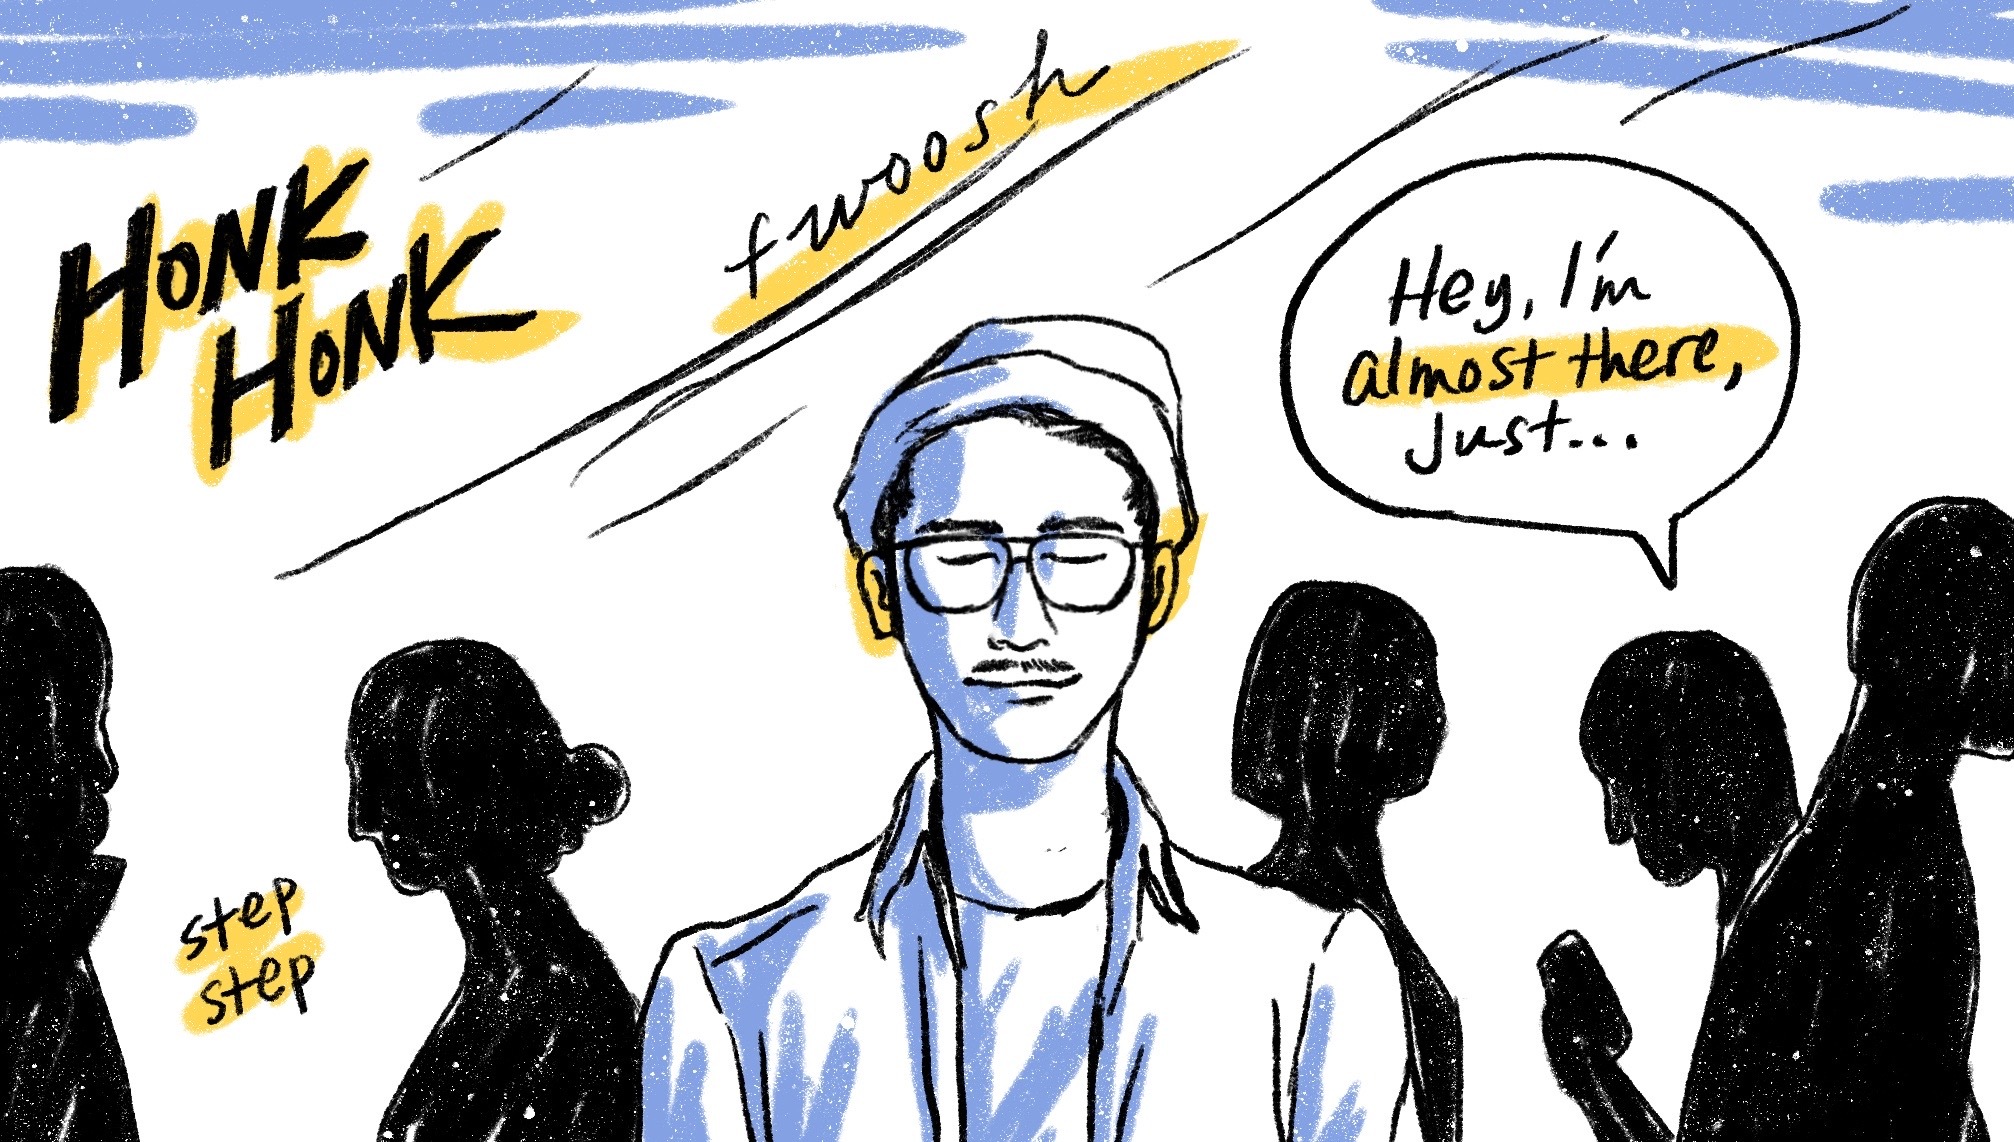 HONK
HONK
fwoosh
Hey, I'm
almost there,
just...
step
step